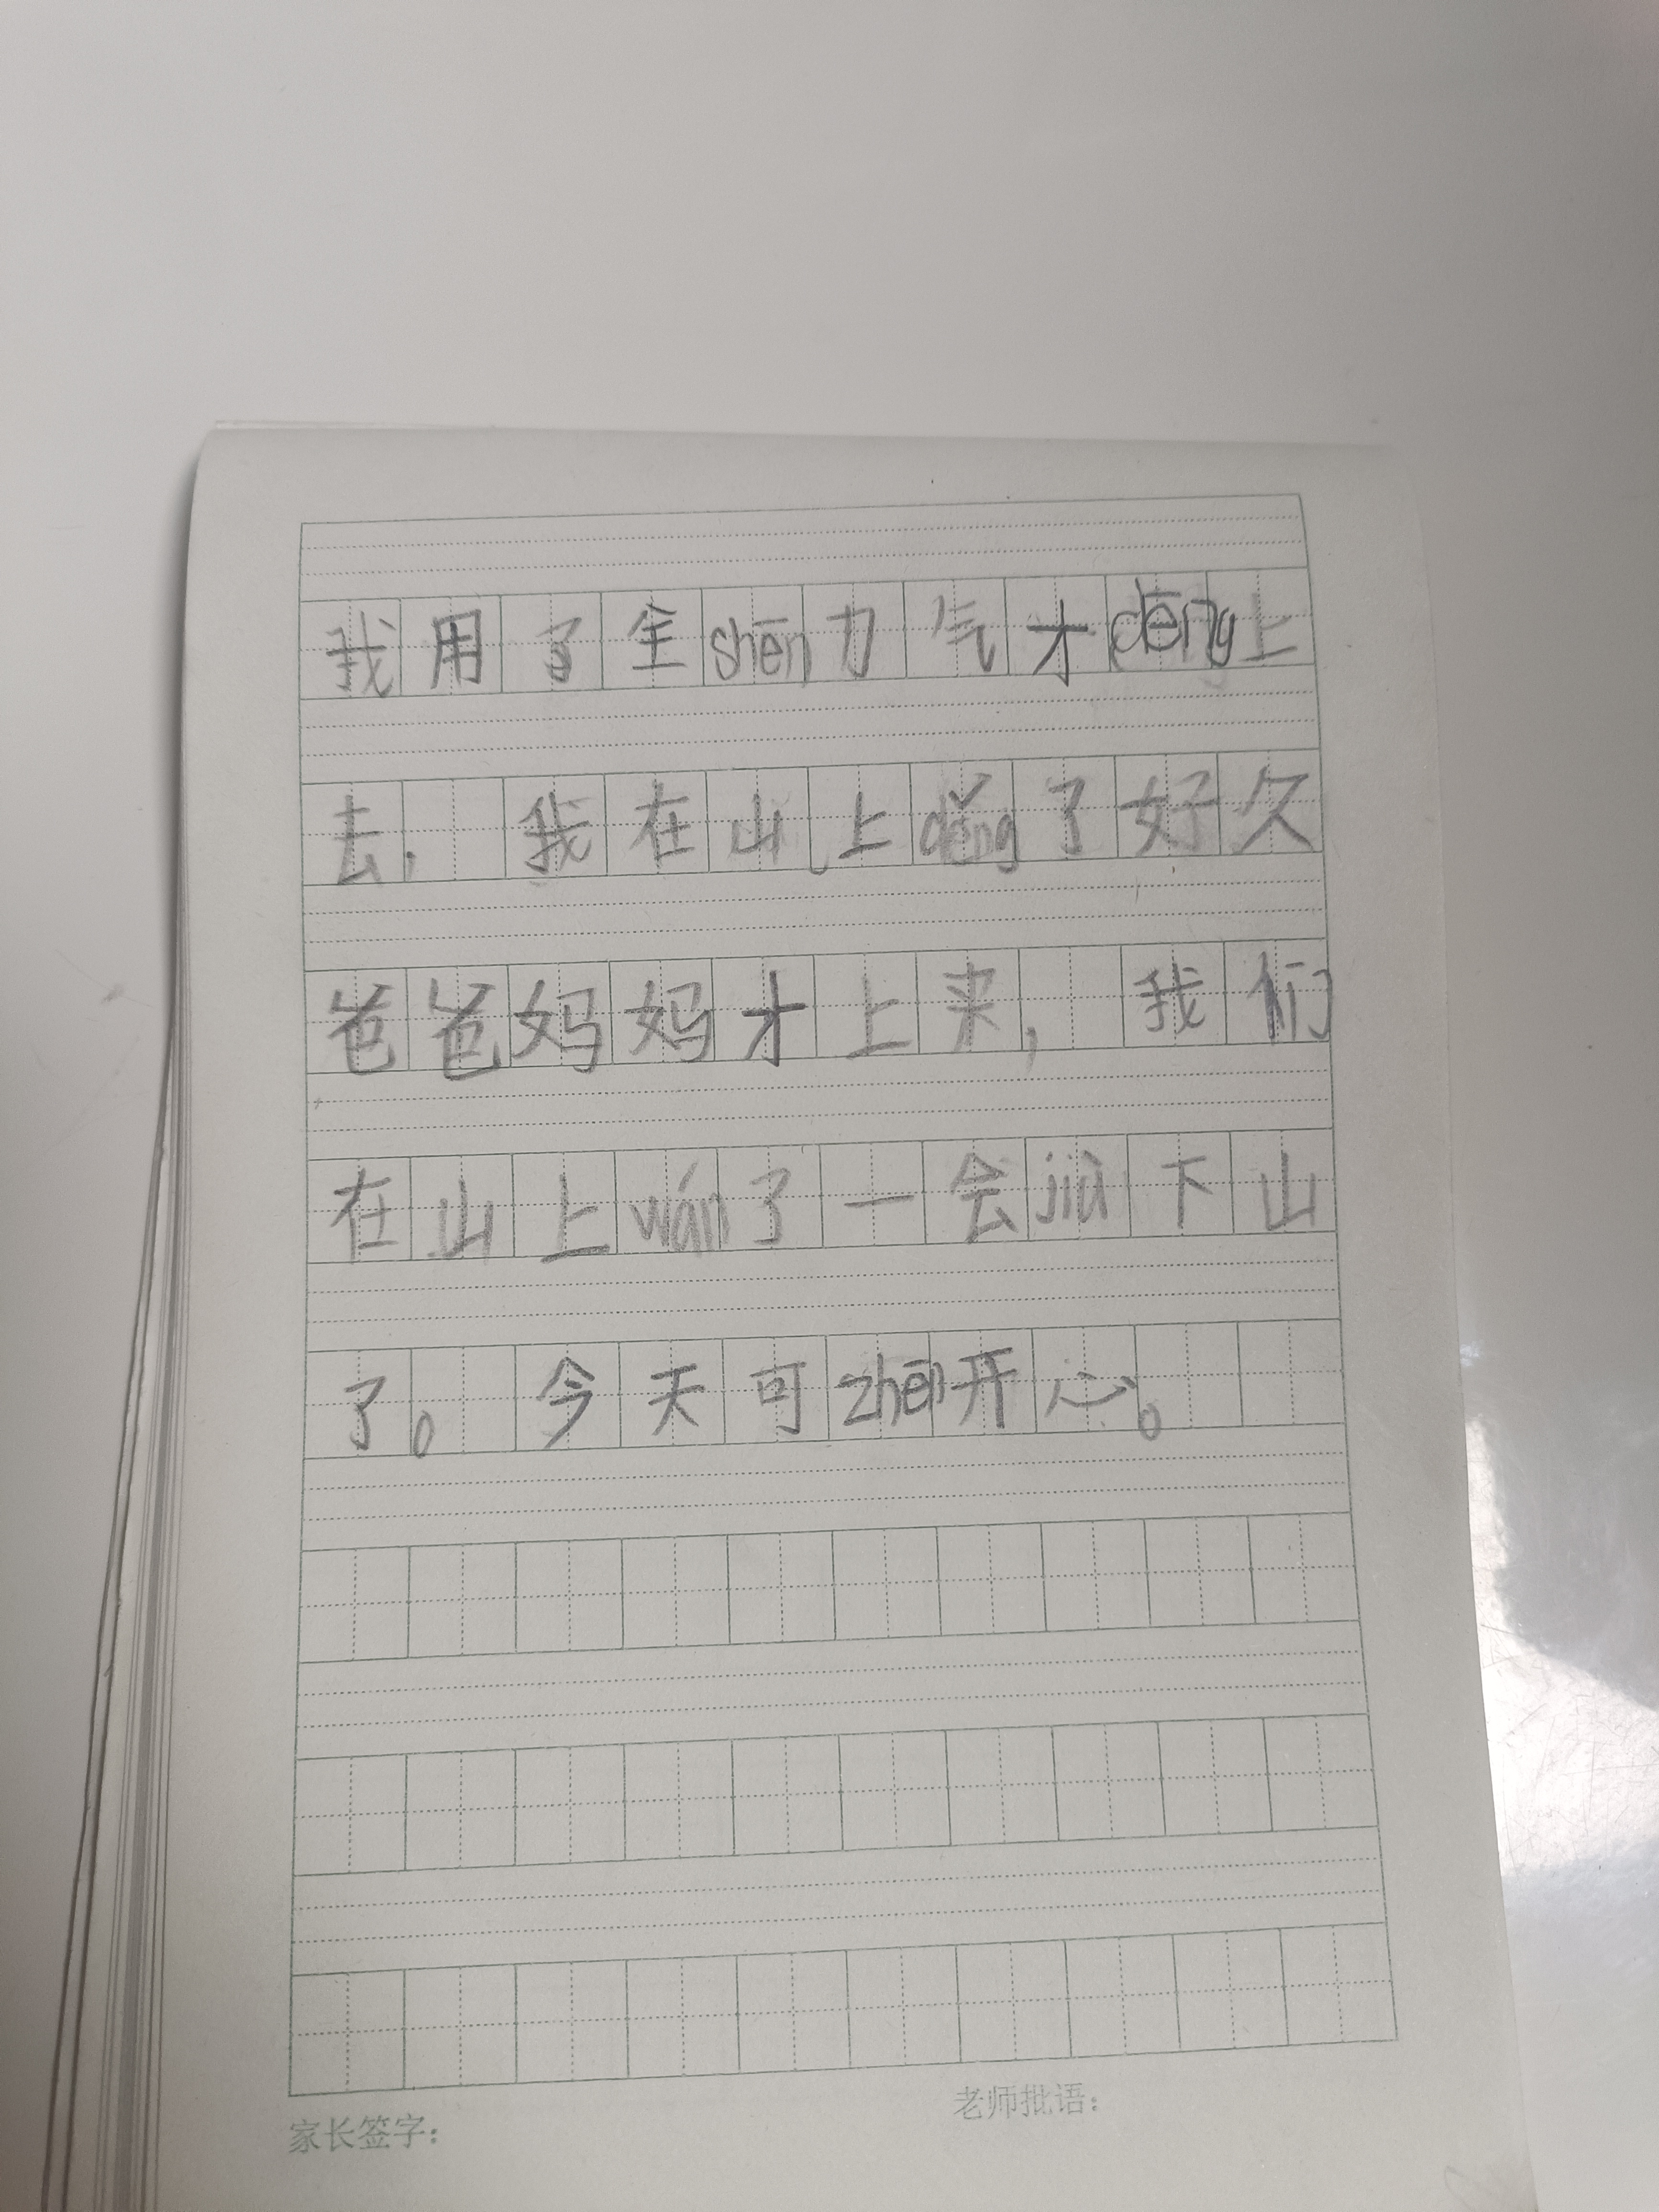 我用了全shēn力气才dēng上
去，我在山上děng了好久
爸爸妈妈才上来，我们
在山上wán了一会jiù下山
了。今天可zhēn开心。
家长签字：
老师批语：